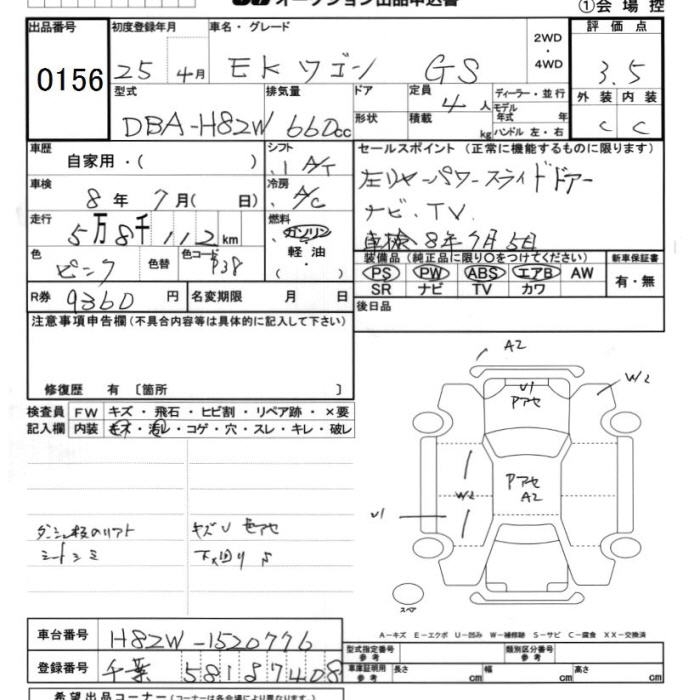 オークション出品申込書
①会場控
出品番号
0156
初度登録年月
25 4月
車名・グレード
EKワゴン GS
2WD・4WD
評価点
3.5
型式
DBA-H82W
排気量
660cc
ドア
形状
定員
4人
積載
kg
ディーラー・並行
モデル年式 年
ハンドル 左・右
外装 内装
C C
車歴
自家用・( )
シフト
A/T
車検
8年7月( 日)
冷房
A/C
走行
5万8千112km
燃料
ガソリン・軽油・( )
色
ピンク
色替
色コード
P38
R券 9360円
名変期限 月 日
セールスポイント (正常に機能するものに限ります)
左リヤーパワースライドドアー
ナビ・TV
車検8年7月5日
装備品 (純正品に限り○をつけてください)
PS PW ABS エアB AW
SR ナビ TV カワ
新車保証書
有・無
後日品
注意事項申告欄(不具合内容等は具体的に記入して下さい)
修復歴 有 〔箇所 〕
検査員記入欄
FW キズ・飛石・ヒビ割・リペア跡・×要
内装 キズ・汚レ・コゲ・穴・スレ・キレ・破レ
シートシミ
キズU 色アセ
下廻りS
A2
U1
Pアセ
W2
Pアセ
A2
W2
U1
スペア
A-キズ E-エクボ U-凹み W-補修跡 S-サビ C-腐食 XX-交換済
車台番号 H82W-1520776
登録番号 千葉 581 ま 7408
型式指定番号参考
類別区分番号参考
車庫証明用参考
長さ cm 幅 cm 高さ cm
希望出品コーナー(コーナーは各会場により異なります)